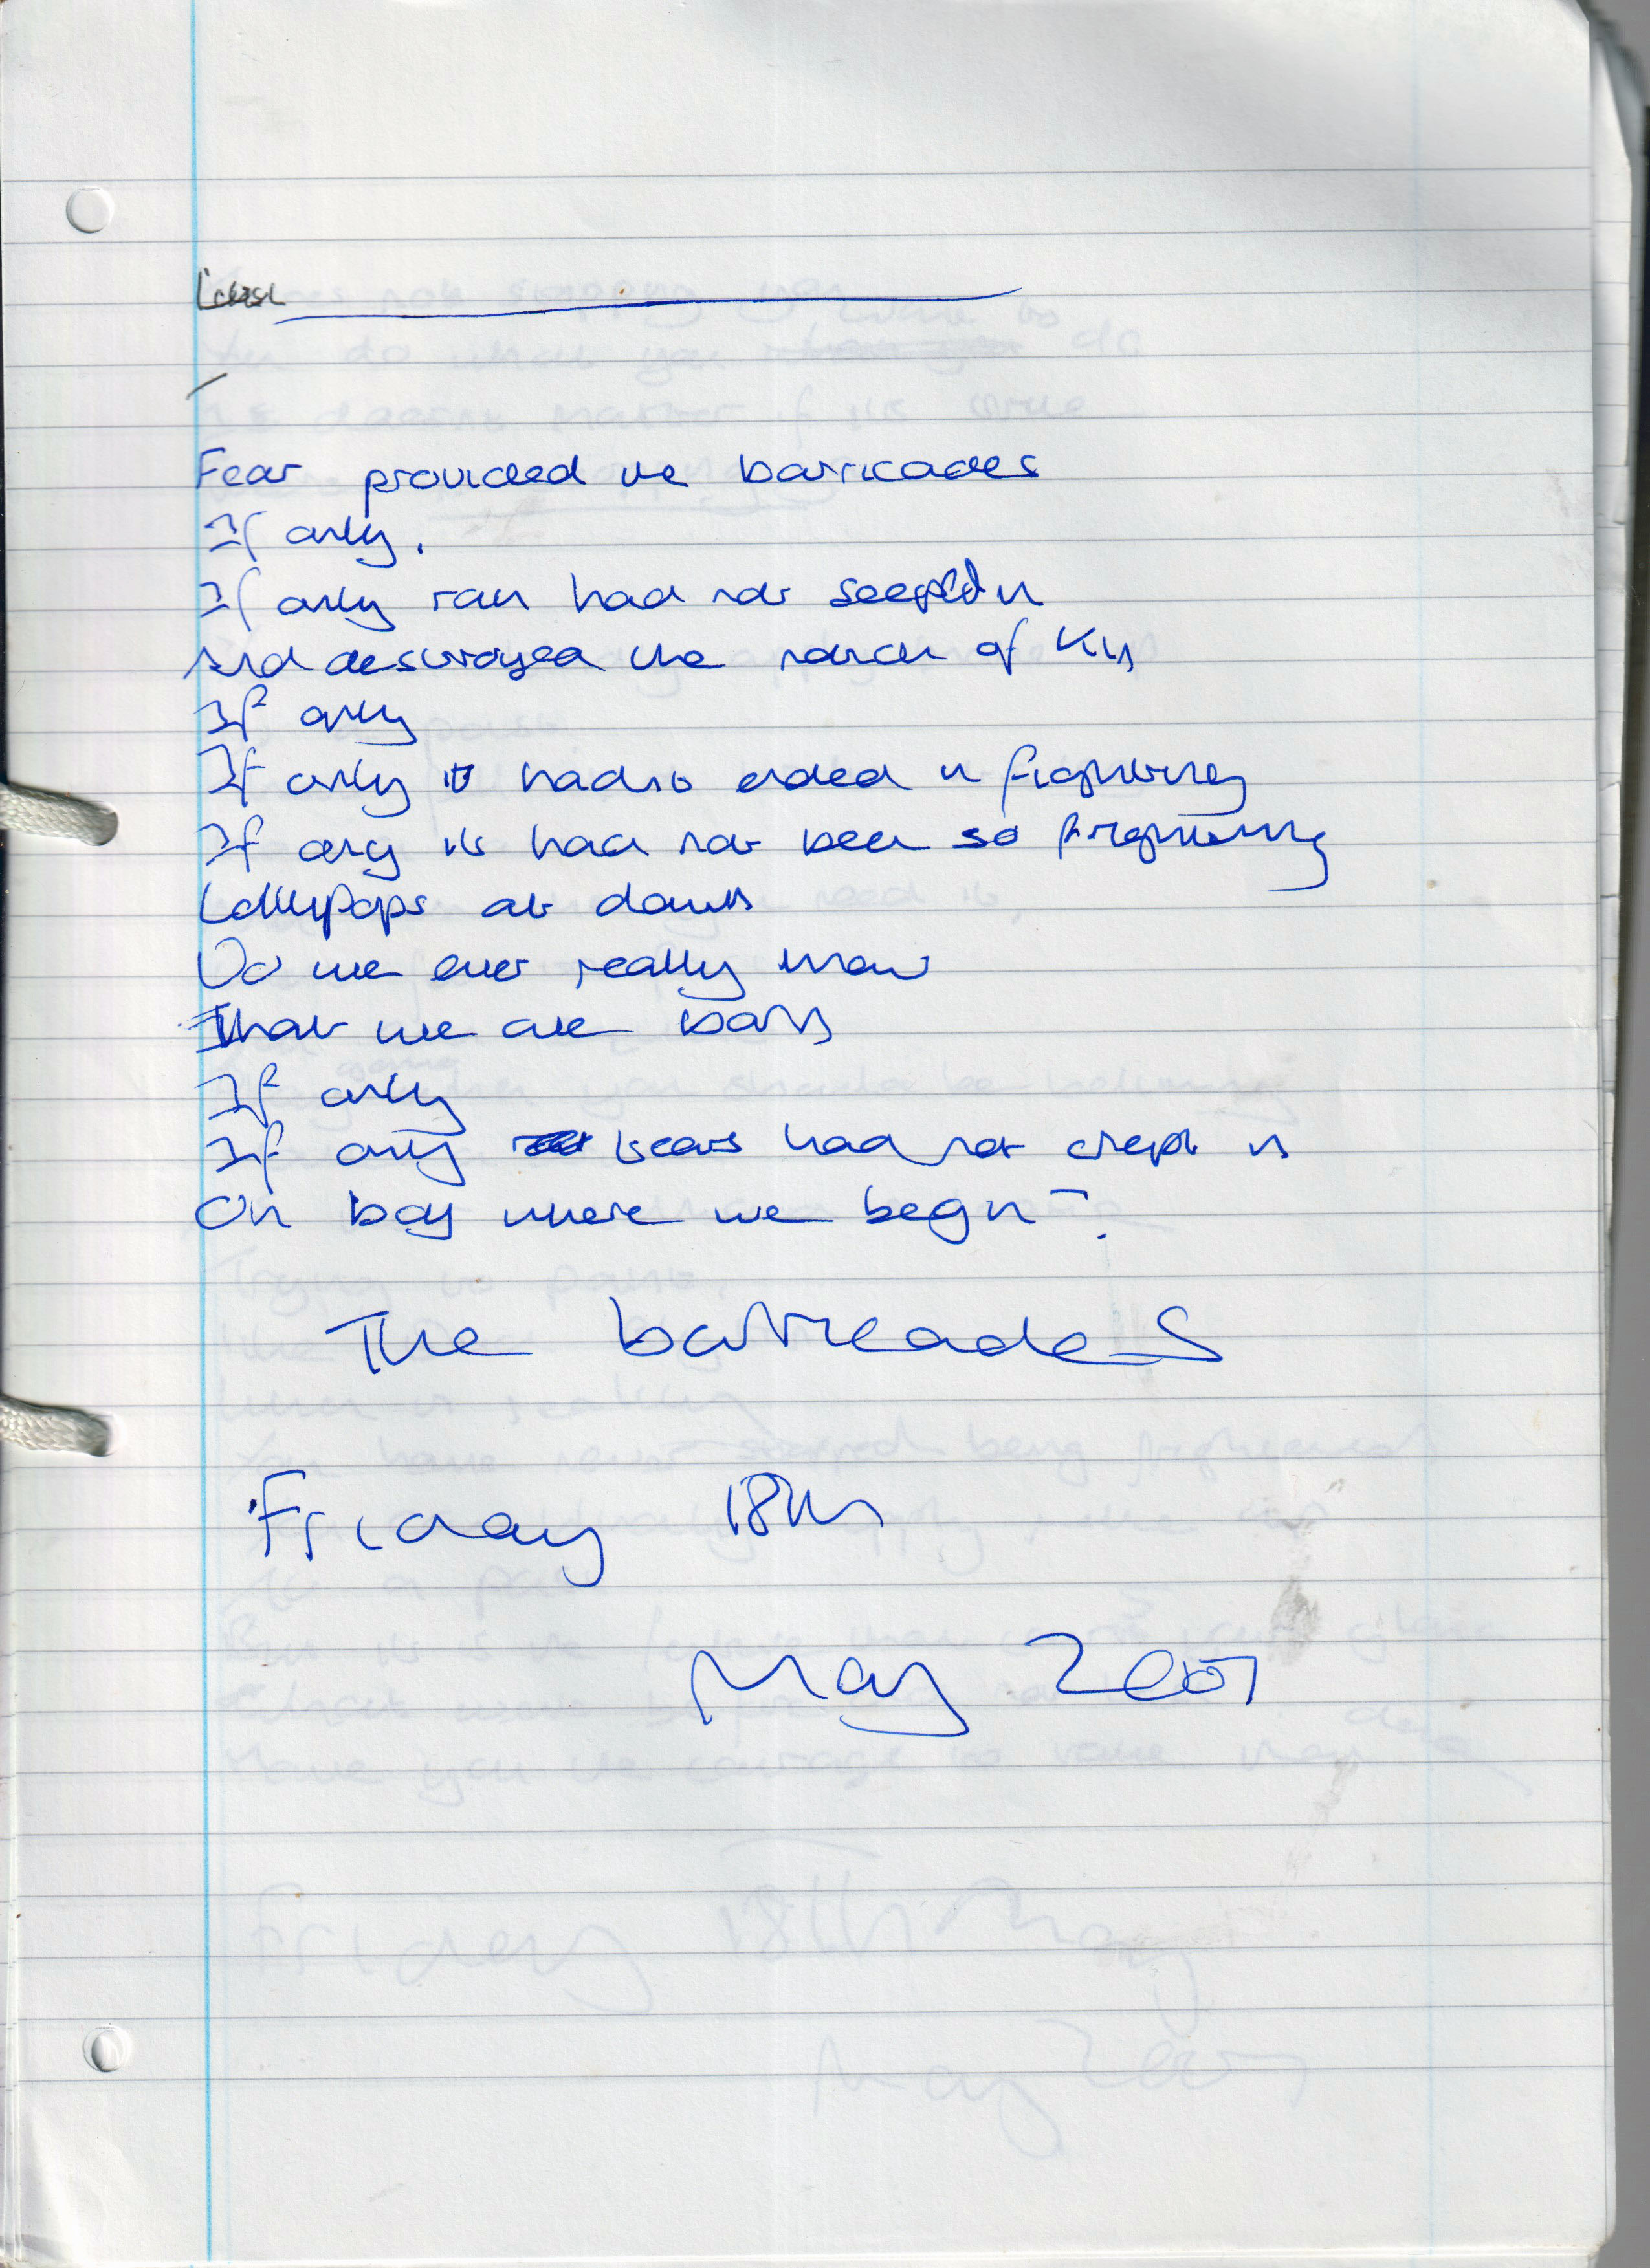 Fear provided the barricades
If only.
If only rain had not seeped in
And destroyed the march of
If only
If only it hadn't ended in fighting
If only it had not been so frightening
Lollipops at dawn
Do we ever really know
That we are born
If only
If only tears had not crept in
Oh boy where we begin?
The barricades
Friday 18th
May 2007